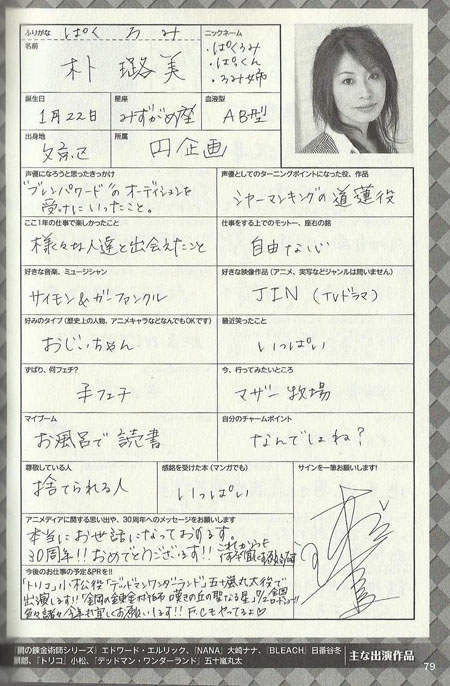 ふりがな
ぱく ろみ
ニックネーム
・ぱくろみ
・ぱくくん
・ろみ姉
名前
朴 璐美
誕生日
1月22日
星座
みずがめ座
血液型
AB型
出身地
文京区
所属
円企画
声優になろうと思ったきっかけ
"ブレンパワード"のオーディションを
受けにいったこと。
声優としてのターニングポイントになった役、作品
シャーマンキングの道蓮役
ここ1年の仕事で楽しかったこと
様々な人達と出会えたこと
仕事をする上でのモットー、座右の銘
自由な心
好きな音楽、ミュージシャン
サイモン&ガーファンクル
好きな映像作品(アニメ、実写などジャンルは問いません)
JIN (TVドラマ)
好みのタイプ(歴史上の人物、アニメキャラなどなんでもOKです)
おじいちゃん
最近笑ったこと
いっぱい
ずばり、何フェチ?
手フェチ
今、行ってみたいところ
マザー牧場
マイブーム
お風呂で読書
自分のチャームポイント
なんでしょね?
尊敬している人
捨てられる人
感銘を受けた本(マンガでも)
いっぱい
サインを一筆お願いします!
アニメディアに関する思い出や、30周年へのメッセージをお願いします
本当にお世話になっております。
30周年!!おめでとうございます!!
今後のお仕事の予定&PRを!!
「トリコ」小松役「デッドマンワンダーランド」五十嵐丸太役で
出演します!!「鋼の錬金術師 嘆きの丘の聖なる星」7/2全国ロードショー!!
色々諸々今年も宜しくお願いします!! F.C.もやってるよ♡
79
『鋼の錬金術師シリーズ』エドワード・エルリック、『NANA』大崎ナナ、『BLEACH』日番谷冬
獅郎、『トリコ』小松、『デッドマン・ワンダーランド』五十嵐丸太
主な出演作品